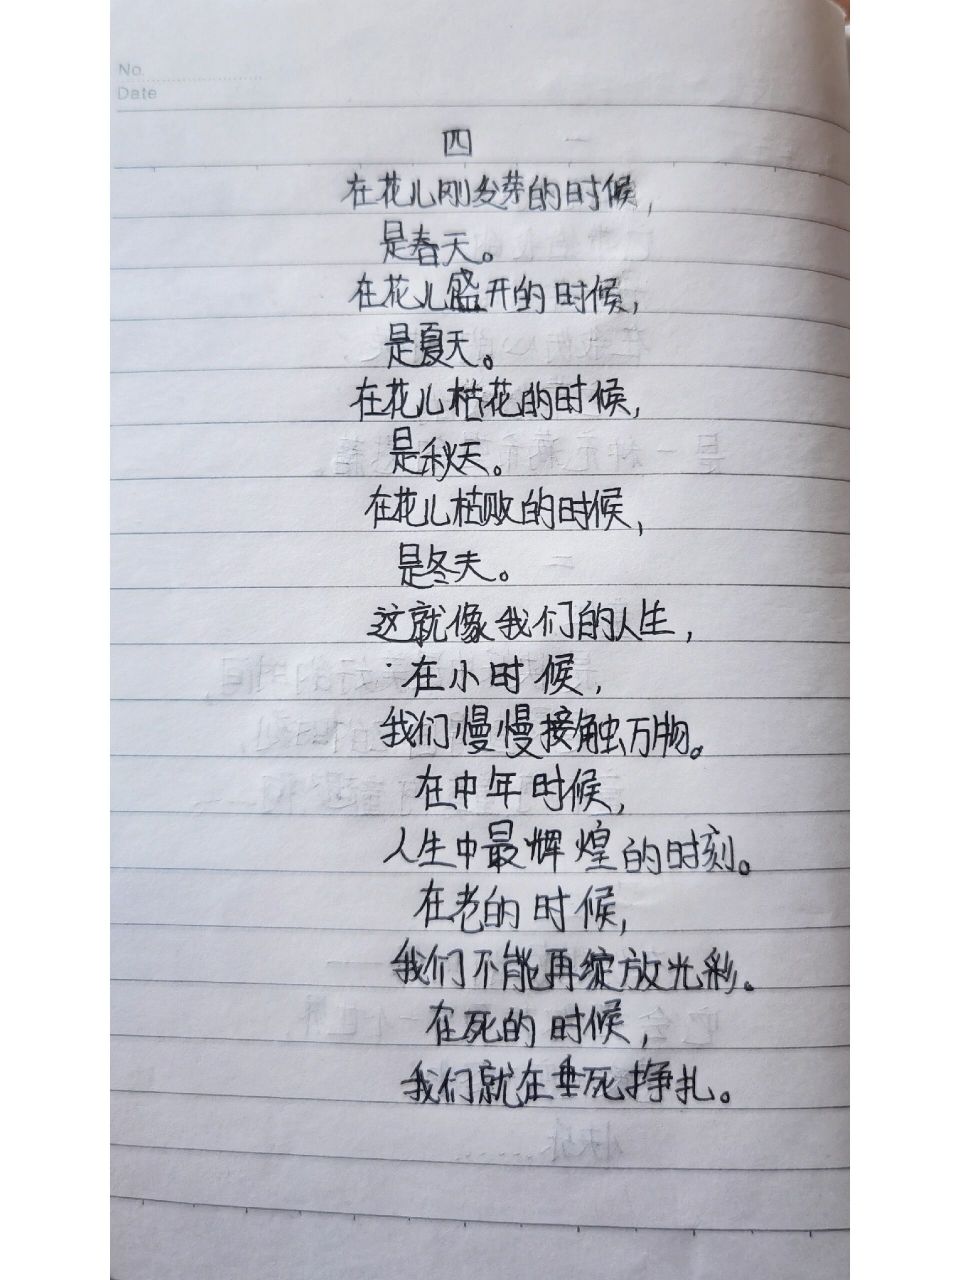 No.
Date
四
在花儿刚发芽的时候,
是春天。
在花儿盛开的时候,
是夏天。
在花儿枯花的时候,
是秋天。
在花儿枯败的时候,
是冬天。
这就像我们的人生,
在小时候,
我们慢慢接触万物。
在中年时候,
人生中最辉煌的时刻。
在老的时候,
我们不能再绽放光彩。
在死的时候,
我们就在垂死挣扎。